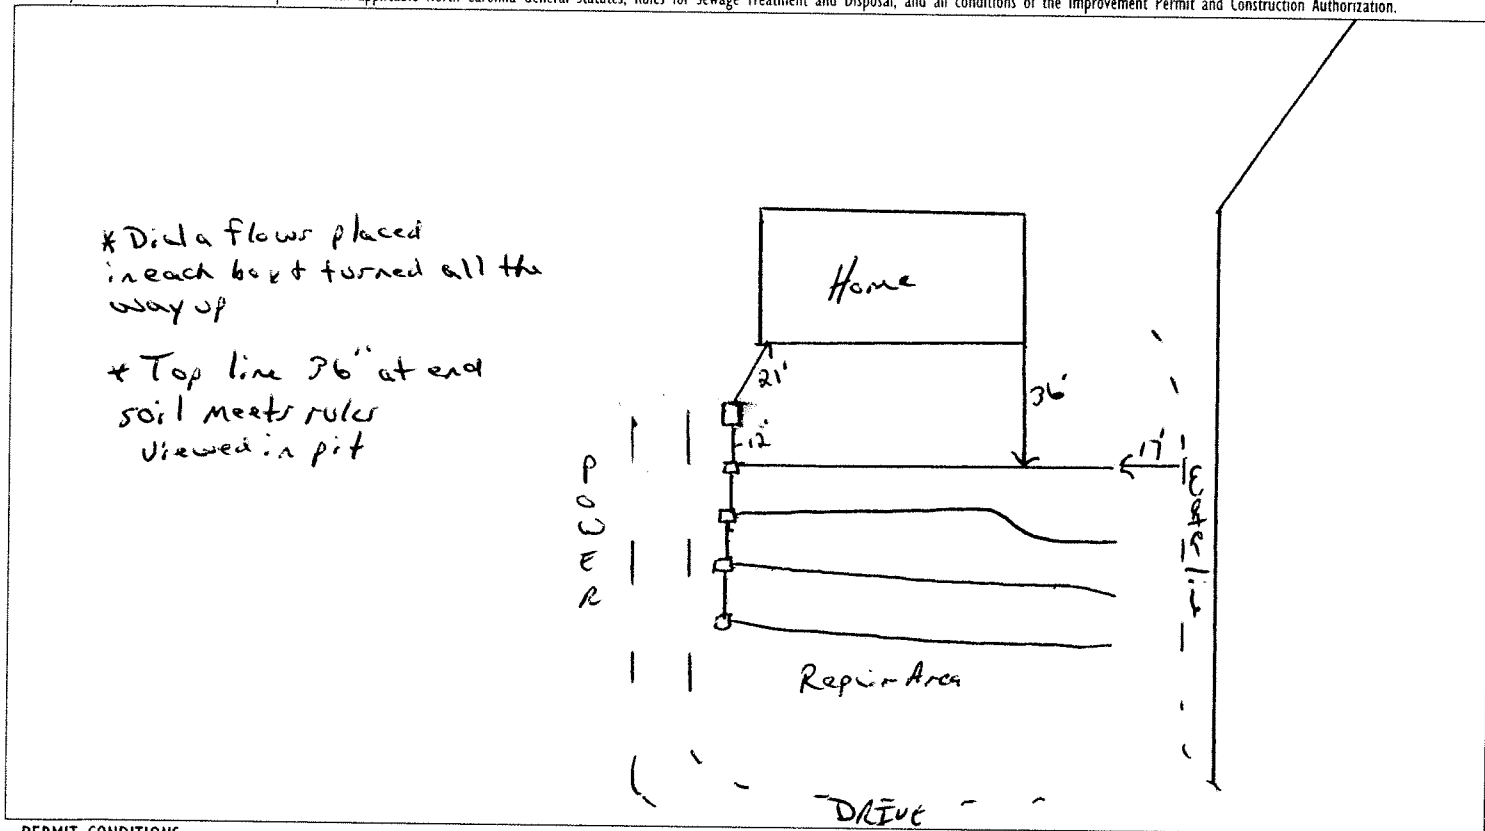 applicable North Carolina General Statutes, Rules for Sewage Treatment and Disposal, and all conditions of the Improvement Permit and Construction Authorization.
* Dial a flows placed
in each box & turned all the
way up
* Top line 36" at end
soil meets rules
viewed in pit
Home
21'
36'
12'
17'
POWER
Repair Area
DRIVE
PERMIT CONDITIONS